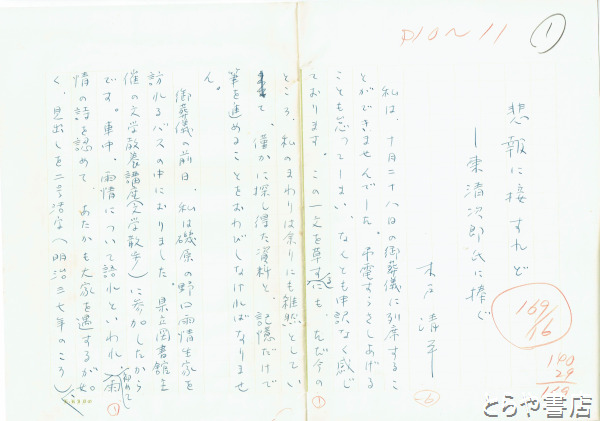 P10~11
①
悲報に接すれど
―栗清次郎氏に捧ぐ
木戸清平
私は、十月二十八日の御葬儀に列席するこ
とができませんでした。弔電すらさしあげる
ことも忘ってしまい、なくとも申訳なく感じ
ております。この一文を草すにも、ただ今の
ところ、私のまわりは余りにも雑然としてい
て、僅かに探し得た資料と、記憶だけで
筆を進めることをおわびしなければなりませ
ん。
御葬儀の前日、私は磯原の野口雨情生家を
訪れるバスの中におりました。県立図書館主
催の文学教養講座(文学散歩)に参加したから
です。車中、雨情について語れといわれ、雨
情の詩を認めて、あたかも大家を遇するが如
く、見出しを二号活字へ明治三七年のころ
169
16
140
29
119
①
①
とらや書店